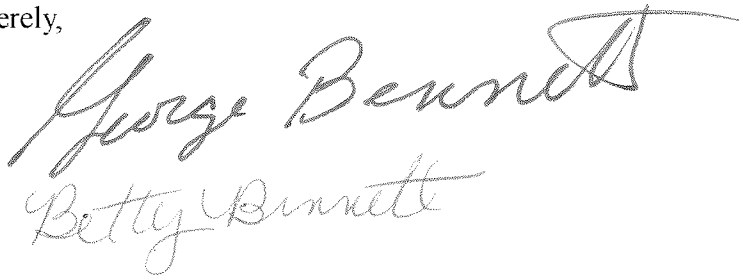 erely,
George Bennett
Betty Bennett